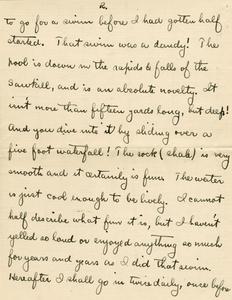 2.
to go for a swim before I had gotten half
started. That swim was a dandy! The
pool is down in the rapids & falls of the
Sawkill, and is an absolute novelty. It
isnt more than fifteen yards long, but deep!
And you dive into it by sliding over a
five foot waterfall! The rock (shale) is very
smooth and it certainly is fun. The water
is just cool enough to be lively. I cannot
half describe what fun it is, but I haven't
yelled so loud or enjoyed anything so much
for years and years as I did that swim.
Hereafter I shall go in twice daily, once before